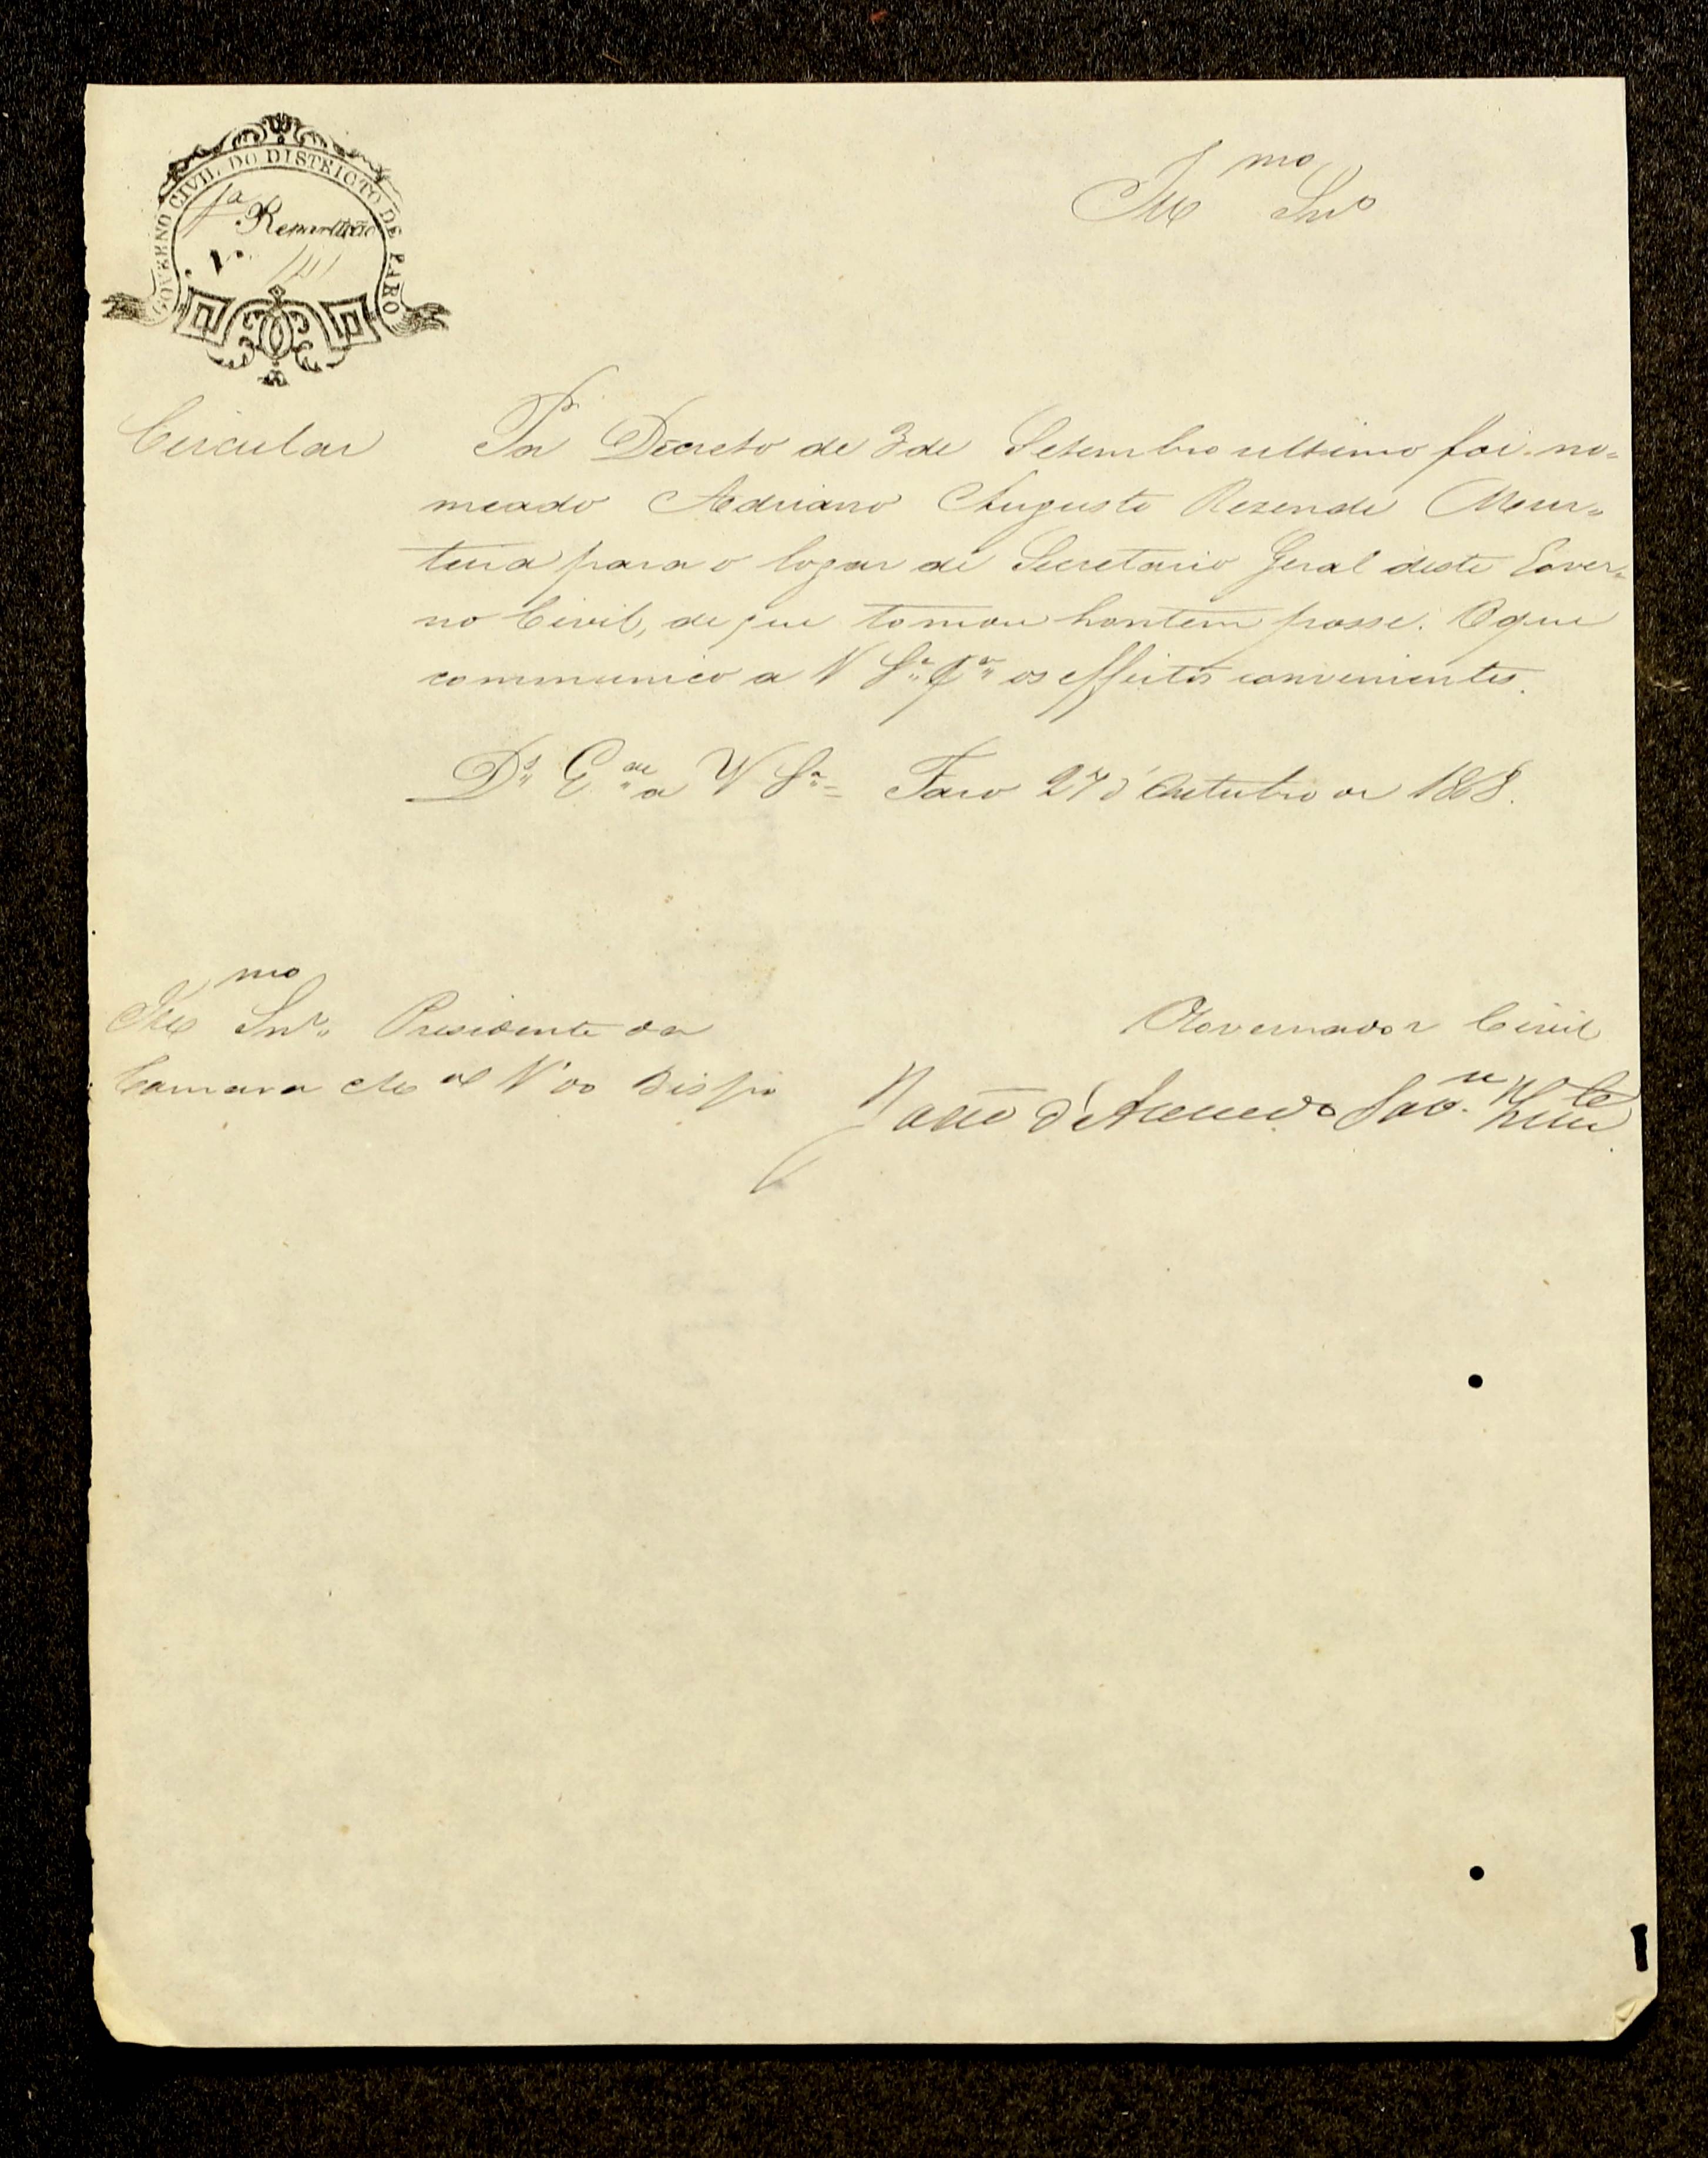 GOVERNO CIVIL DO DISTRICTO DE FARO
1a Repartição
N.º
Illmo Snr
Circular
Por Decreto de 3 de Setembro ultimo foi no=
meado Adriano Augusto Rezende Mour=
teira para o logar de Secretario Geral deste Gover=
no Civil, de que tomou hontem posse. O que
communico a V Sa pa os effeitos convenientes.
Ds Gde a V Sa = Faro 27 d'Outubro de 1868.
Illmo Snr Presidente da
Camara Mal de Va do Bispo
O Governador Civil
José d'Azevedo